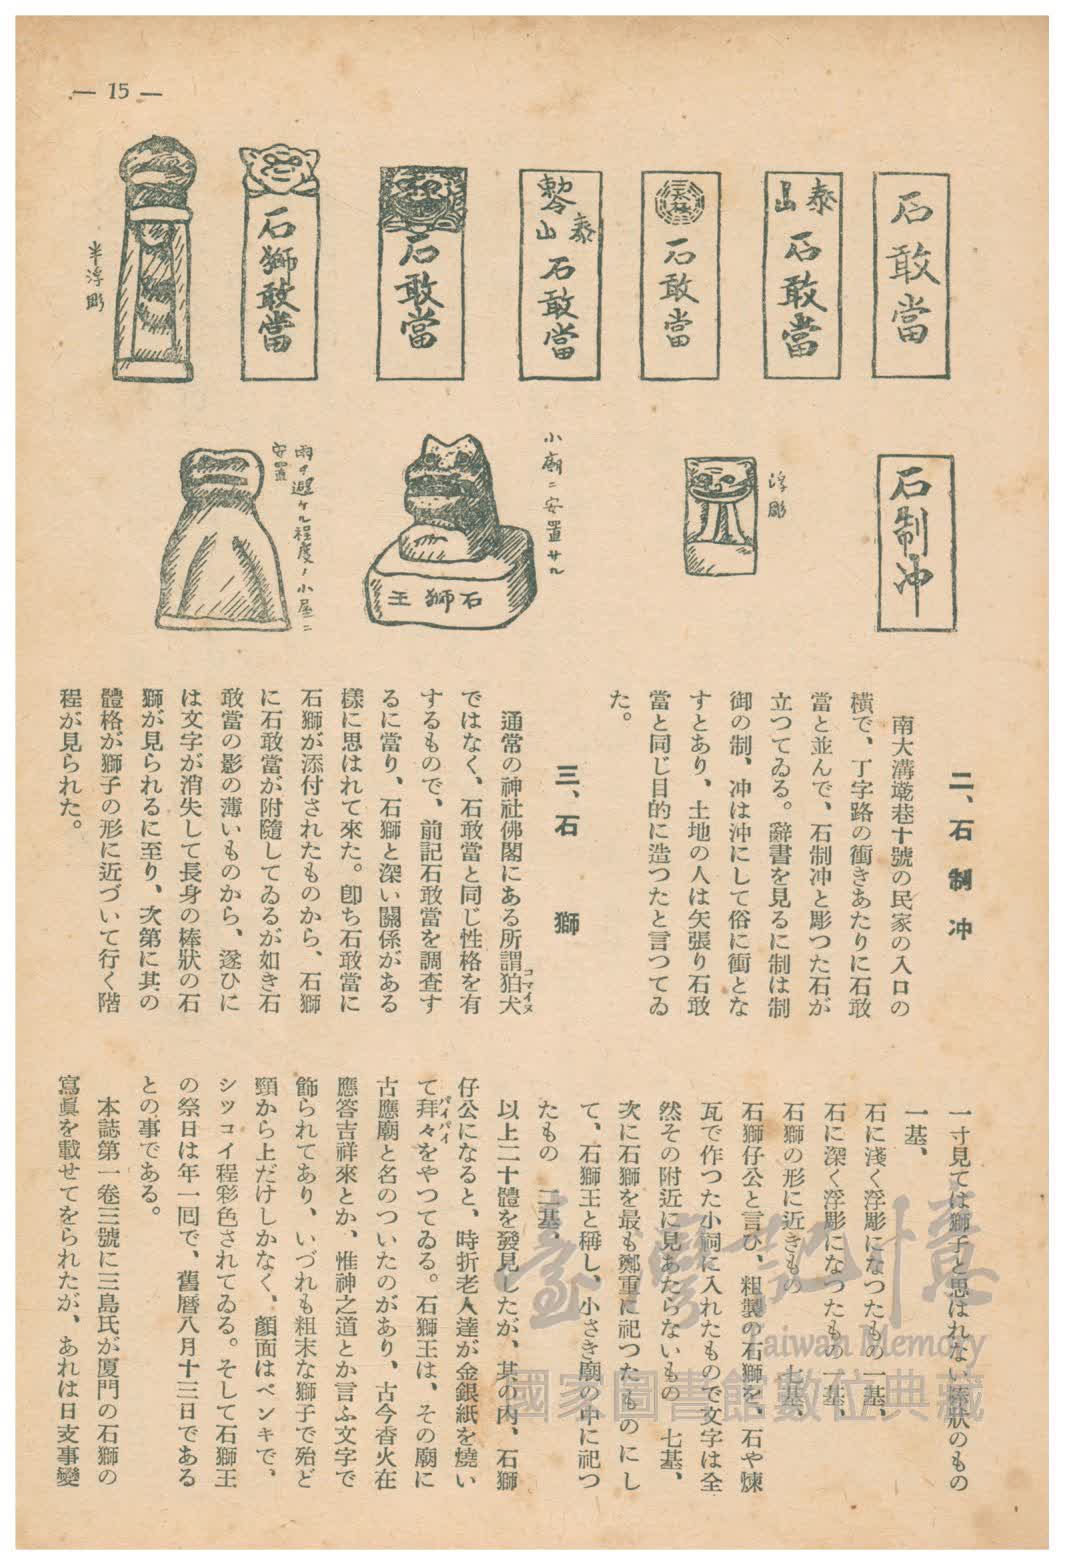 — 15 —
石敢當
泰山
石敢當
石敢當
勅令
泰山
石敢當
石敢當
石獅敢當
半浮彫
石制冲
浮彫
小廟ニ安置サル
石獅王
雨ヲ避ケル程度ノ小屋ニ
安置
二、石制冲
南大溝墘巷十號の民家の入口の
橫で、丁字路の衝きあたりに石敢
當と並んで、石制冲と彫つた石が
立つてゐる。辭書を見るに制は制
御の制、冲は沖にして俗に衝とな
すとあり、土地の人は矢張り石敢
當と同じ目的に造つたと言つてゐ
た。
三、石獅
通常の神社佛閣にある所謂狛犬
コマイヌ
ではなく、石敢當と同じ性格を有
するもので、前記石敢當を調査す
るに當り、石獅と深い關係がある
樣に思はれて來た。卽ち石敢當に
石獅が添付されたものから、石獅
に石敢當が附隨してゐるが如き石
敢當の影の薄いものから、遂ひに
は文字が消失して長身の棒狀の石
獅が見られるに至り、次第に其の
體格が獅子の形に近づいて行く階
程が見られた。
一寸見ては獅子と思はれない棒狀のもの
一基、
石に淺く浮彫になつたもの一基、
石に深く浮彫になつたもの一基、
石獅の形に近きもの　七基、
石獅仔公と言ひ、粗製の石獅を、石や煉
瓦で作つた小祠に入れたもので文字は全
然その附近に見あたらないもの　七基、
次に石獅を最も鄭重に祀つたものにし
て、石獅王と稱し、小さき廟の中に祀つ
たもの　二基、
以上二十體を發見したが、其の內、石獅
仔公になると、時折老人達が金銀紙を燒い
て拜々をやつてゐる。石獅王は、その廟に
パイパイ
古應廟と名のついたのがあり、古今香火在
應答吉祥來とか、惟神之道とか言ふ文字で
飾られてあり、いづれも粗末な獅子で殆ど
頸から上だけしかなく、顏面はペンキで、
シツコイ程彩色されてゐる。そして石獅王
の祭日は年一囘で、舊曆八月十三日である
との事である。
本誌第一卷三號に三島氏が厦門の石獅の
寫眞を載せてをられたが、あれは日支事變
臺灣記憶
Taiwan Memory
國家圖書館數位典藏